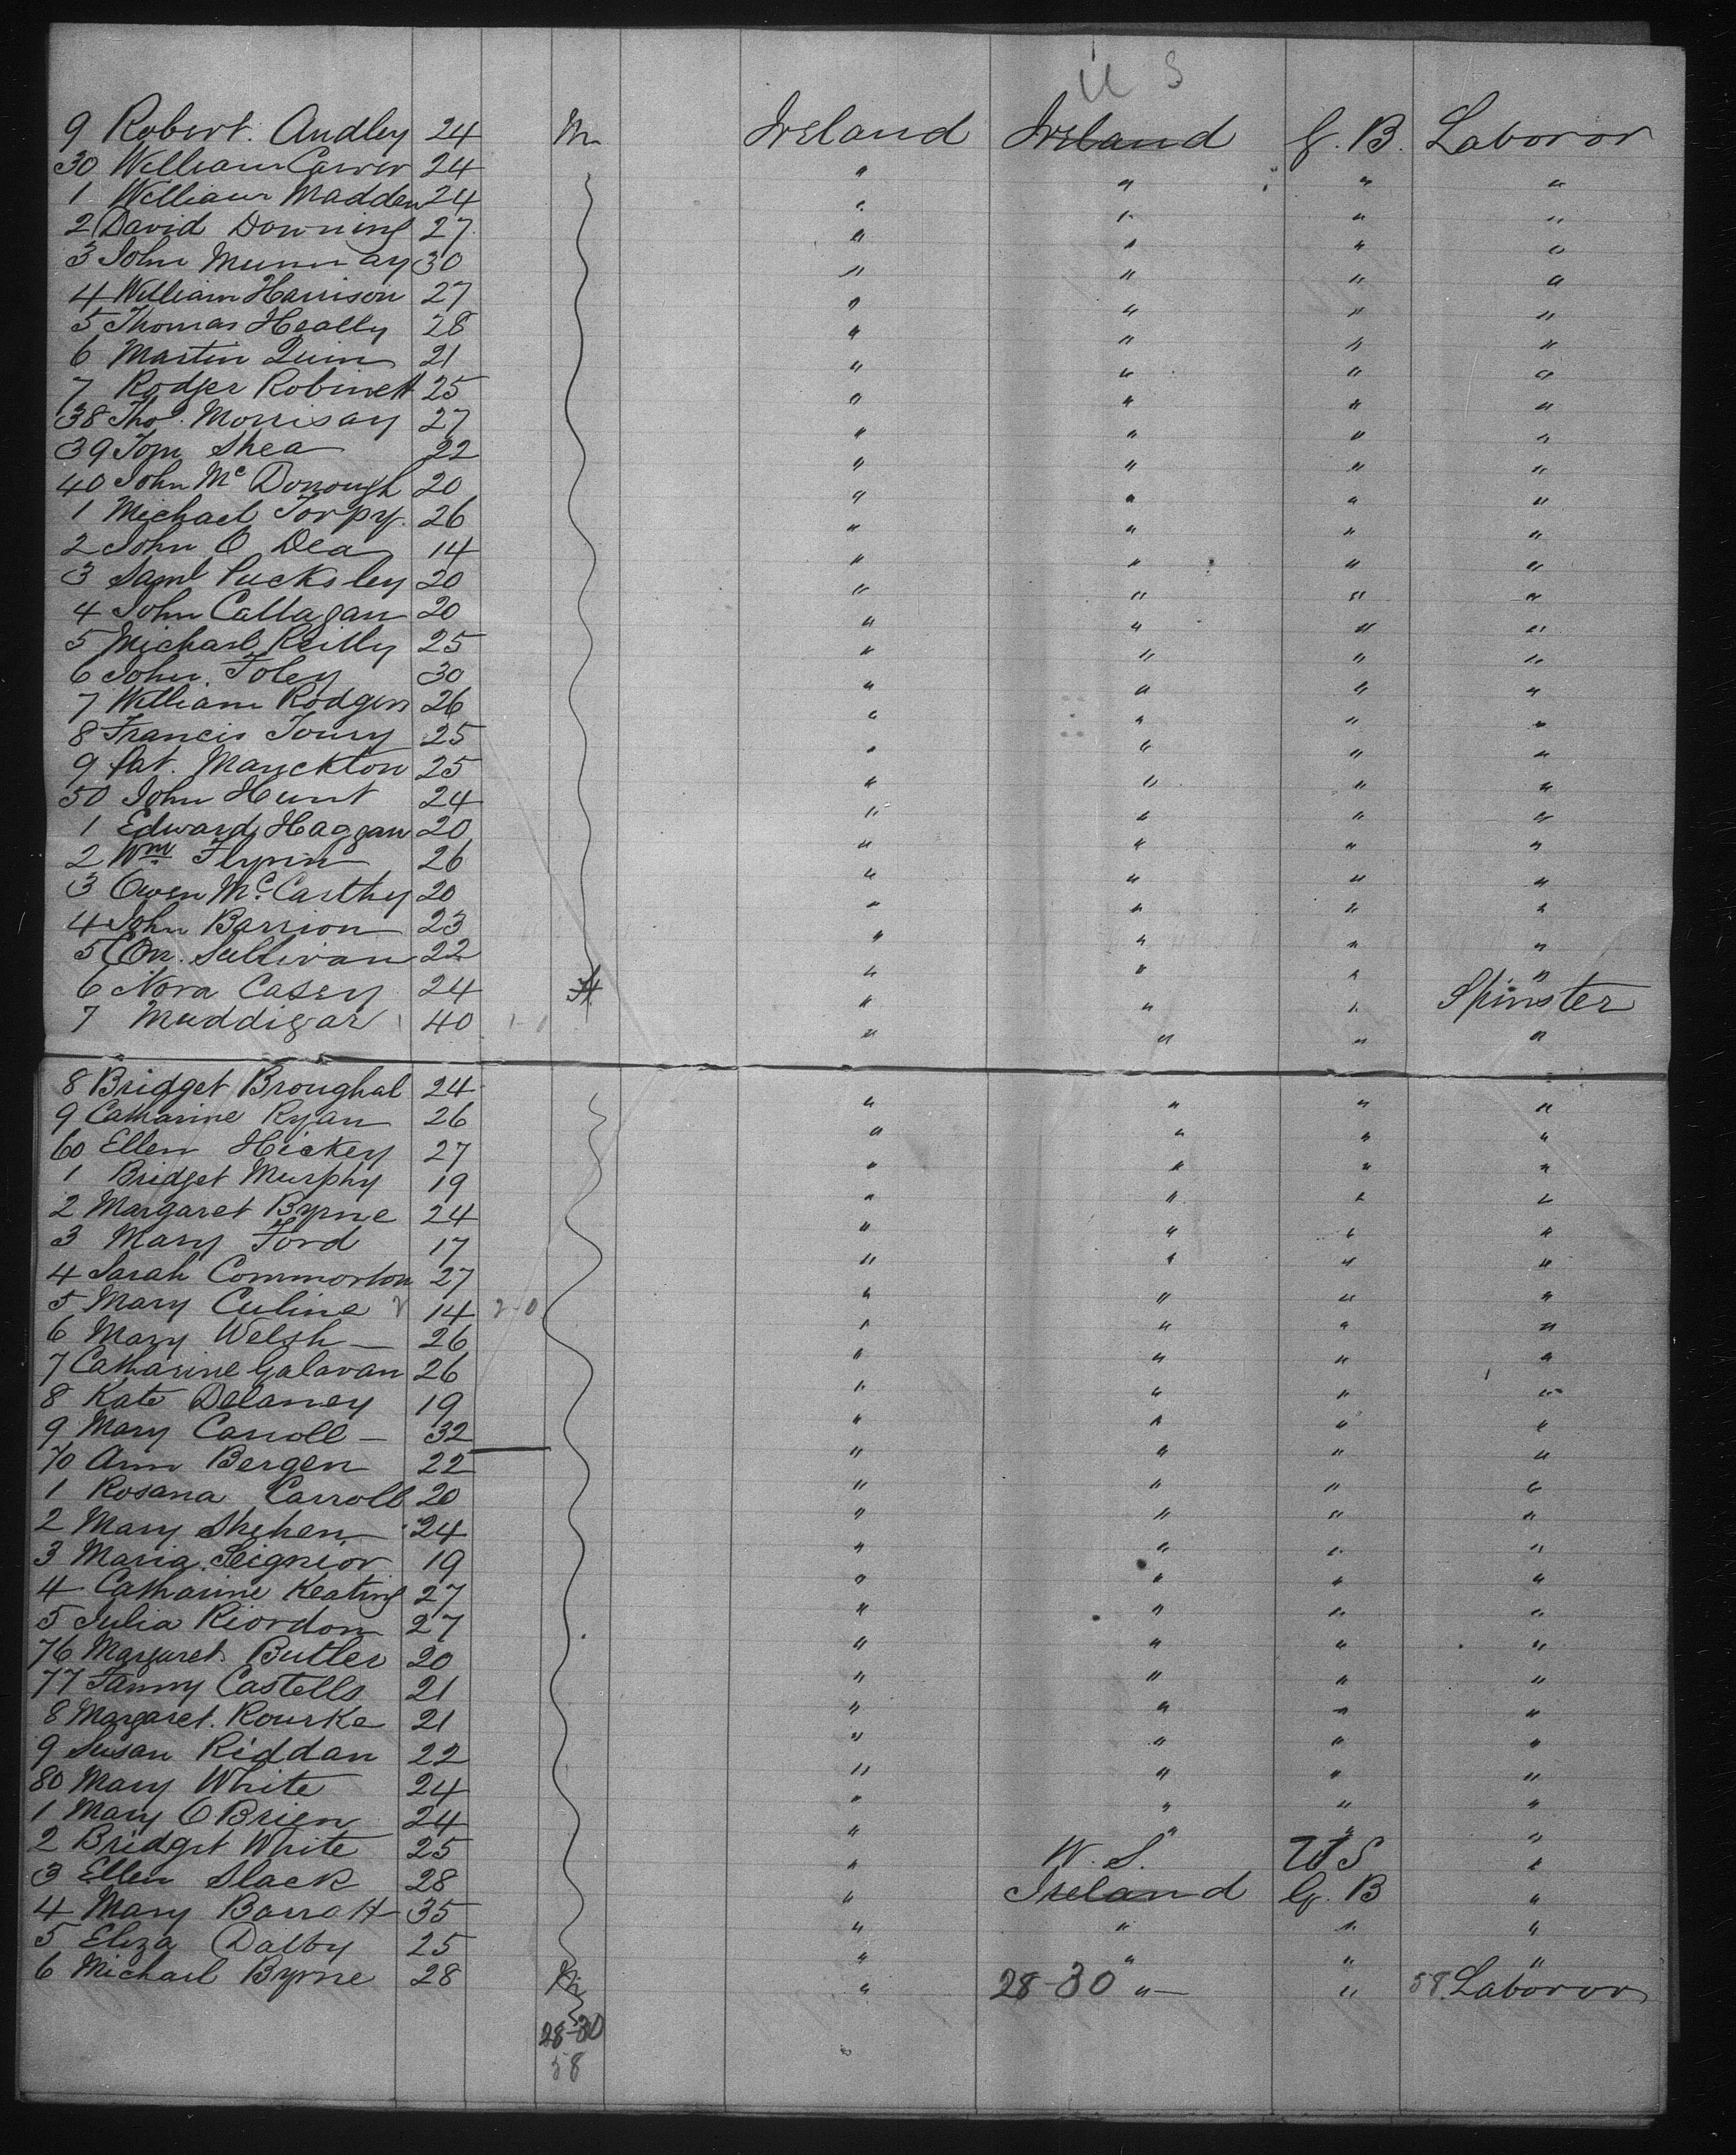 U S
9 Robert. Audley 24 M Ireland Ireland G. B. Laboror
30 William Carver 24 " " " "
1 William Madden 24 " " " "
2 David Downing 27 " " " "
3 John Murray 30 " " " "
4 William Harrison 27 " " " "
5 Thomas Heally 28 " " " "
6 Martin Quin 21 " " " "
7 Rodger Robinett 25 " " " "
38 Thos. Morrisay 27 " " " "
39 Tom Shea 22 " " " "
40 John Mc Donough 20 " " " "
1 Michael Torpy. 26 " " " "
2 John O Dea 14 " " " "
3 Saml Pucksley 20 " " " "
4 John Callagan 20 " " " "
5 Michael Reilly 25 " " " "
6 John. Foley 30 " " " "
7 William Rodgers 26 " " " "
8 Francis Toury 25 " " " "
9 Pat. Manckton 25 " " " "
50 John Hunt 24 " " " "
1 Edward Haggan 20 " " " "
2 Wm Flynn 26 " " " "
3 Owen Mc. Carthy 20 " " " "
4 John Barrion 23 " " " "
5 Con. Sullivan 22 " " " "
6 Nora Casey 24 " " " Spinster
7 Muddigar 40 " " " "
8 Bridget Broughal 24 " " " "
9 Catharine Ryan 26 " " " "
60 Ellen Hickey 27 " " " "
1 Bridget Murphy 19 " " " "
2 Margaret Byrne 24 " " " "
3 Mary Ford 17 " " " "
4 Sarah Commorton 27 " " " "
5 Mary Culine 14 2-0 " " " "
6 Mary Welsh 26 " " " "
7 Catharine Galavan 26 " " " "
8 Kate Delaney 19 " " " "
9 Mary Carroll 32 " " " "
70 Ann Bergen 22 " " " "
1 Rosana Carroll 20 " " " "
2 Mary Shehen 24 " " " "
3 Maria. Seignior 19 " " " "
4 Catharine Keating 27 " " " "
5 Julia Riordon 27 " " " "
76 Margaret. Butler 20 " " " "
77 Fanny Castells 21 " " " "
8 Margaret. Rourke 21 " " " "
9 Susan Riddan 22 " " " "
80 Mary White 24 " " " "
1 Mary O Brien 24 " " " "
2 Bridget White 25 " U. S. U S "
3 Ellen Slack 28 " Ireland G. B "
4 Mary Barratt 35 " " " "
5 Eliza Dalby 25 " " " "
6 Michael Byrne 28 M " 28-30 " " 58 Laboror
28-30
58